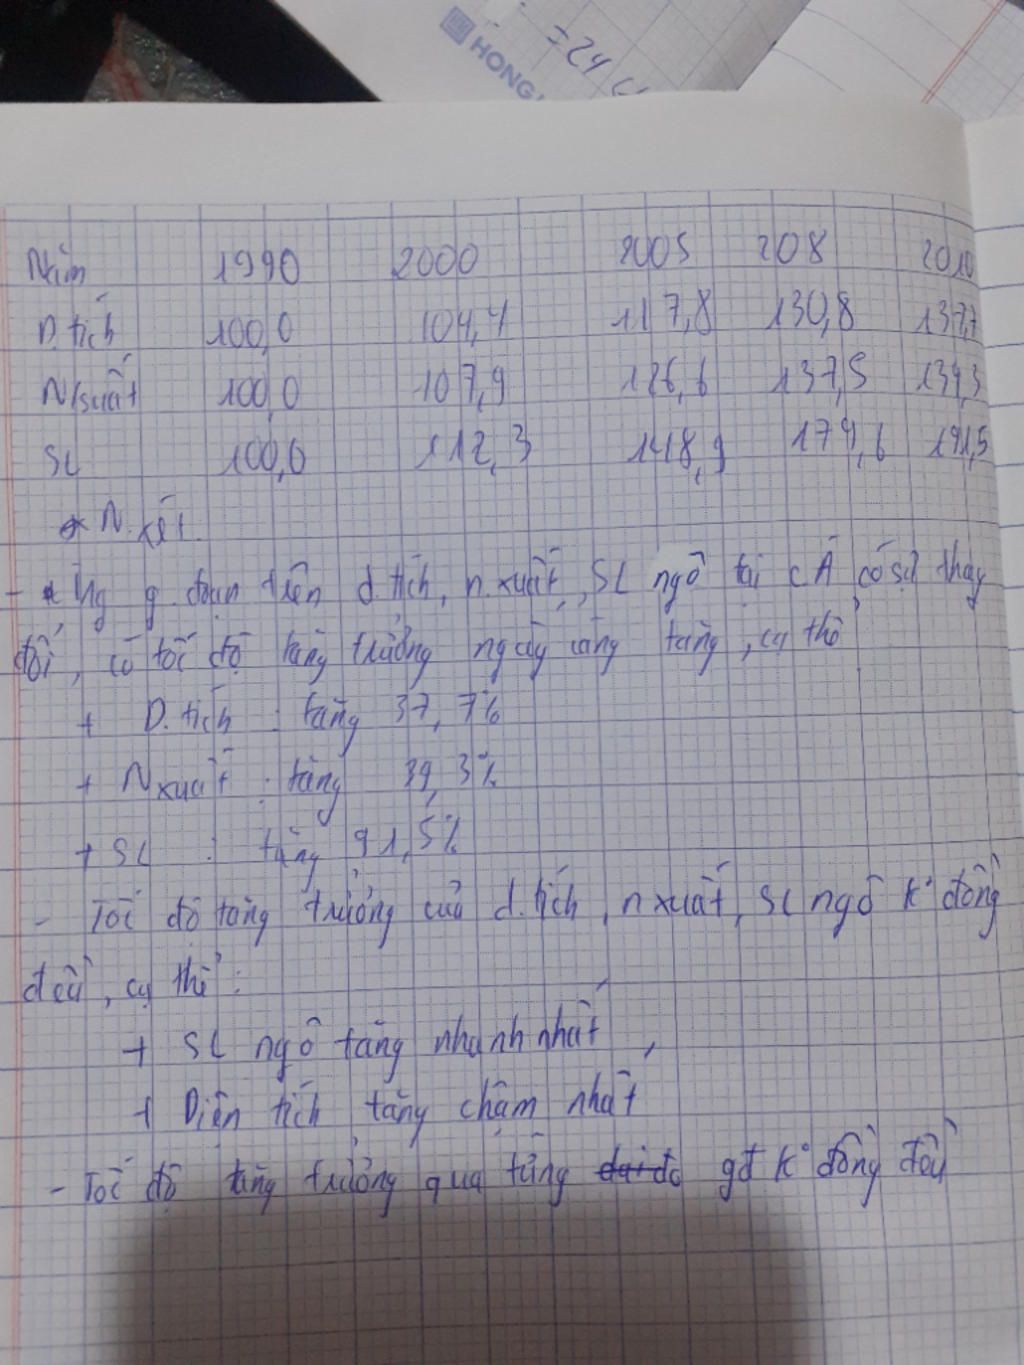 HONG
= 24
Năm 1990 2000 2005 208 2010
D.tích 100,0 104,4 117,8 130,8 137,7
N/suất 100,0 107,9 126,6 137,5 139,3
SL 100,0 112,3 148,9 179,6 191,5
* N.xét.
- g.đoạn trên d.tích, n.xuất, SL ngô tại cÁ có sự thay
đổi, có tốc độ tăng trưởng ngày càng tăng, cụ thể
+ D.tích : tăng 37,7%
+ N xuất : tăng 39,3%
+ SL : tăng 91,5%
- Tốc độ tăng trưởng của d.tích, n xuất, SL ngô K° đồng
đều, cụ thể :
+ SL ngô tăng nhanh nhất,
+ Diện tích tăng chậm nhất
- Tốc độ tăng trưởng qua từng gđ K° đồng đều